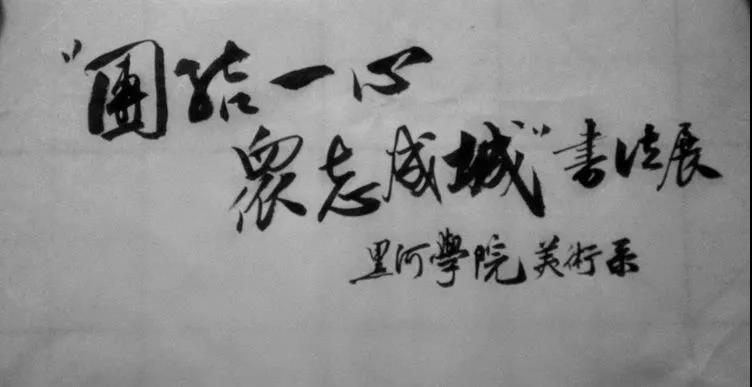 “團結一心
眾志成城”書法展
黑河學院美術系